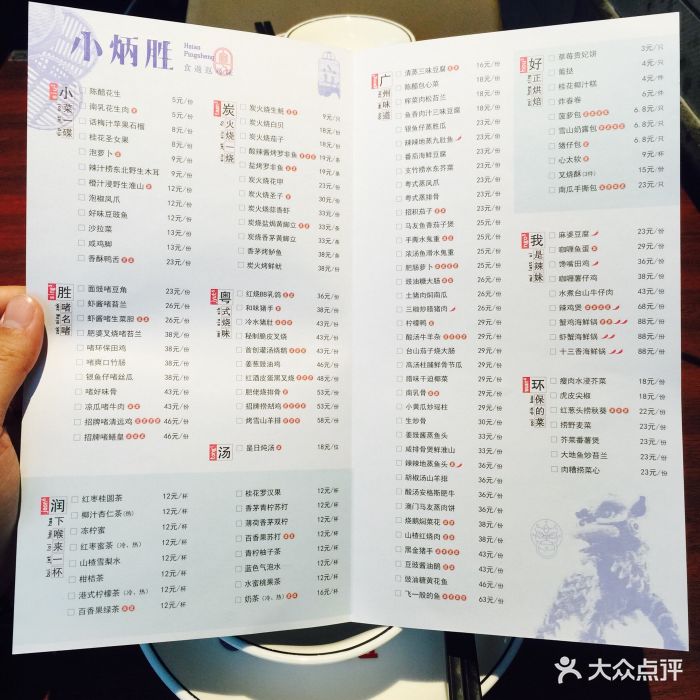 小炳胜
Hsiao Pingsheng
小菜一碟
陈醋花生 5元/份
南乳花生肉 5元/份
话梅汁苹果石榴 9元/份
桂花圣女果 9元/份
泡萝卜 9元/份
辣汁捞东北野生木耳 9元/份
橙汁浸野生淮山 9元/份
泡椒凤爪 12元/份
好味豆豉鱼 12元/份
沙拉菜 12元/份
咸鸡脚 13元/份
香酥鸭舌 23元/份
胜啫名啫
面豉啫豆角 23元/份
虾酱啫苔兰 23元/份
虾酱啫生菜胆 23元/份
肥婆叉烧啫苔兰 38元/份
啫环保田鸡 38元/份
啫爽口竹肠 38元/份
银鱼仔啫丝瓜 38元/份
啫好味骨 43元/份
凉瓜啫牛肉 43元/份
招牌啫清远鸡 46元/份
招牌啫鳝皇 46元/份
炭火烧一烧
炭火烧生蚝 9元/只
炭火烧白贝 18元/份
炭火烧茄子 18元/份
酸辣酱烤罗非鱼 19元/条
盐烤罗非鱼 19元/条
炭火烧花甲 23元/份
炭火烧圣子 30元/份
炭火烧蒜香虾 33元/份
炭烧盐焗黄脚立 33元/条
炭烧香茅黄脚立 33元/条
香茅烤鲈鱼 38元/份
炭火烤鲜鱿 38元/份
粤式烧味
红烧BB乳鸽 36元/只
和味猪手 38元/份
冷水猪肚 38元/份
秘制脆皮叉烧 38元/份
首创灌汤烧鹅 38元/份
姜葱豉油鸡 38元/份
红酒皮蛋黑叉烧 38元/份
肥佬烧排骨 38元/份
招牌捞刮鸡 38元/份
烤雪山羊排 38元/份
汤
是日炖汤 18元/位
润下喉来一杯
红枣桂圆茶 12元/杯
椰汁杏仁茶(热) 12元/杯
冻柠蜜 12元/杯
红枣蜜茶(冷、热) 12元/杯
山楂雪梨水 12元/杯
柑桔茶 12元/杯
港式柠檬茶(冷、热) 12元/杯
百香果绿茶 12元/杯
桂花罗汉果 12元/杯
香茅青柠苏打 12元/杯
薄荷香茅双柠 12元/杯
百香果苏打 12元/杯
青柠柚子茶 12元/杯
蓝色气泡水 12元/杯
水蜜桃果茶 12元/杯
奶茶(冷、热) 16元/杯
广州味道
清蒸三味豆腐 16元/份
陈醋包心菜 18元/份
榨菜肉松苔兰 18元/份
鱼香肉汁三味豆腐 18元/份
银鱼仔蒸胜瓜 23元/份
辣辣地蒸九肚鱼 23元/份
番茄海鲜豆腐 23元/份
支竹捞水东芥菜 23元/份
粤式蒸凤爪 23元/份
粤式蒸排骨 23元/份
招积茄子 23元/份
马友鱼香茄子煲 25元/份
手撕水鬼重 25元/份
浓汤鱼滑水鬼重 25元/份
肥肠萝卜 25元/份
豉油糖大肠 26元/份
土猪肉焖南瓜 26元/份
三椒炒腊猪肉 27元/份
柠檬鸭 27元/份
酸汤牛羊杂 29元/份
台山茄子烧大肠 29元/份
高汤桂脯鲜骨节瓜 29元/份
腊味干迫椰菜 29元/份
南乳骨 29元/份
小黄瓜炒瑶柱 29元/份
生炒骨 30元/份
姜豉酱蒸鱼头 33元/份
咸排骨煲鲜淮山 33元/份
辣辣地蒸鱼头 33元/份
胡椒汤山羊排 33元/份
酸汤安格斯肥牛 36元/份
澳门马友蒸肉饼 36元/份
烧鹅焗菜花 38元/份
山楂红烧肉 38元/份
黑金猪手 43元/份
豆豉酱油鹅 43元/份
豉油糖黄花鱼 46元/份
飞一般的鱼 63元/份
好正烘焙
草莓贵妃饼 3元/只
煎䭔 4元/只
桂花椰汁糕 4元/份
炸春卷 5元/份
菠萝包 6.8元/只
雪山奶露包 6.8元/只
猪仔包 6.8元/只
心太软 9元/杯
叉烧酥(3件) 15元/份
南瓜手撕包 23元/只
我是辣妹
麻婆豆腐 23元/份
咖喱鱼蛋 29元/份
馋嘴田鸡 38元/份
咖喱薯仔鸡 38元/份
水煮台山牛仔骨 43元/份
辣鸡煲 58元/份
蟹鸡海鲜锅 88元/份
虾蟹海鲜锅 88元/份
十三香海鲜锅 88元/份
环保的菜
瘦肉水浸芥菜 18元/份
虎皮尖椒 18元/份
红葱头捞秋葵 22元/份
捞野麦菜 23元/份
芥菜番薯煲 23元/份
大地鱼炒苔兰 23元/份
肉糟捞菜心 23元/份
大众点评